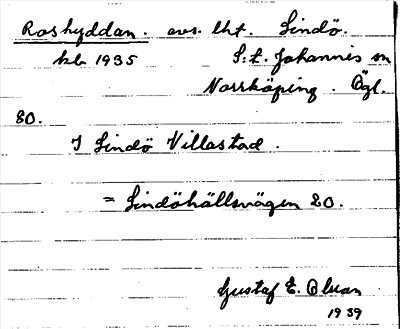 Roshyddan. avs. lht. Lindö.
kbl 1935 S:t. Johannis sn
Norrköping. Ögl.
80.
I Lindö Villastad.
= Lindöhällsvägen 80.
Gustaf E.
1939